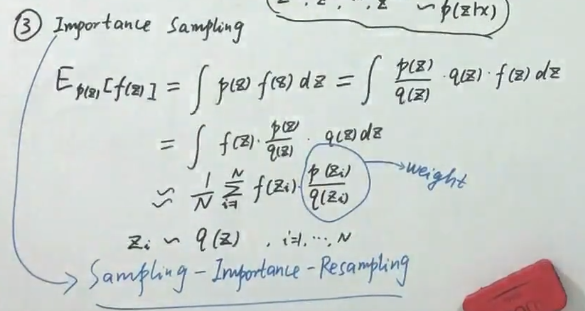 z, z, ..., z ~ p(z|x)
③ Importance Sampling
E_{p(z)}[f(z)] = ∫ p(z) f(z) dz = ∫ \frac{p(z)}{q(z)} · q(z) · f(z) dz
= ∫ f(z) · \frac{p(z)}{q(z)} · q(z) dz
≈ \frac{1}{N} \sum_{i=1}^{N} f(z_i) · \frac{p(z_i)}{q(z_i)} → weight
z_i ~ q(z) , i=1, ⋯, N
Sampling - Importance - Resampling